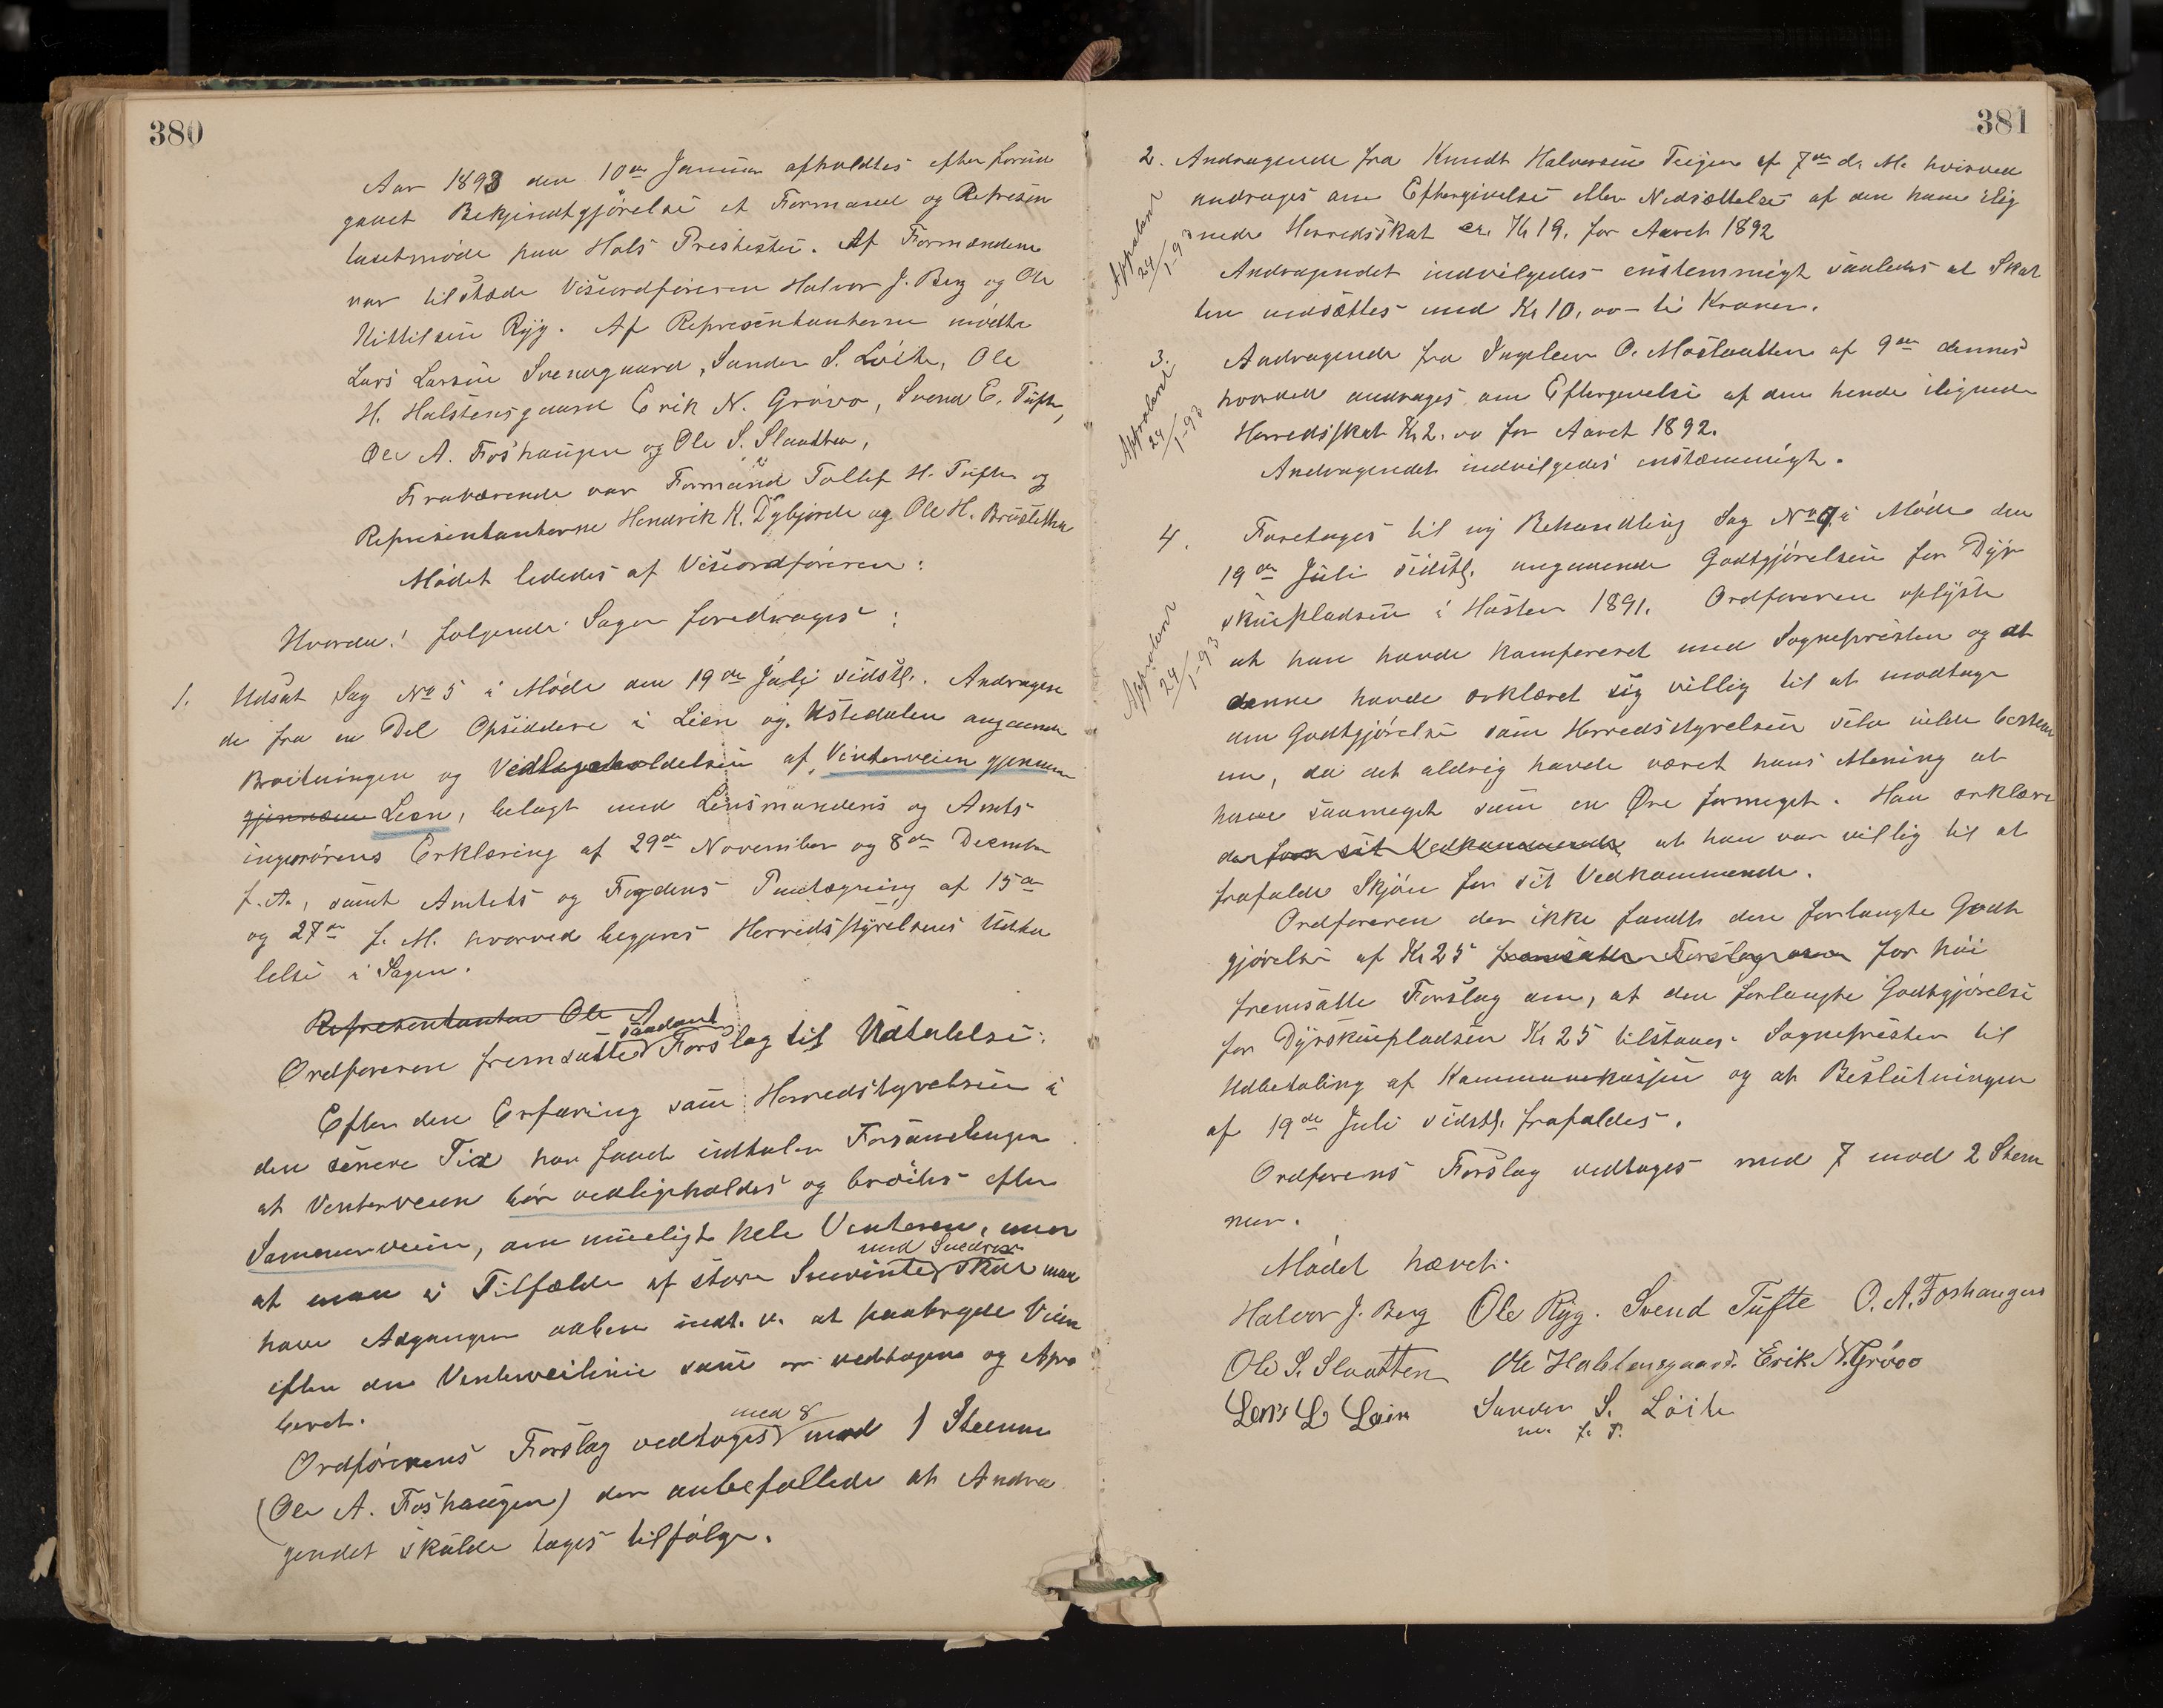 380
Aar 1893 den 10de Januar afholdtes efter forud
gaaet Bekjendtgjörelse et Formand og Represen
tantmöde paa Hols Prestestue. Af Formændene
var tilstæde Viseordföreren Halvor J. Berg og Ole
Kittilsen Ryg. Af Representanterne mödte
Lars Larsen Svenogaard, Sander S. Löite, Ole
H. Halstensgaard Erik N. Grövo, Svend E. Tufte,
Ole A. Foshaugen og Ole S. Slaatten,
Fraværende var Formænd Tollef H. Tufte og
Representanterne Hendrik K. Dybjorde og Ole H. Bruslettha
Mödet lededes af Viseordföreren:
Hvorda! fölgende Sager foredroges:
1. Udsat Sag No 5 i Möde den 19de Juli sidstl. Andragen
de fra en Del Opsiddere i Lien og Ustedalen angaaende
Broitningen og Vedlegeholdelsen af Vinterveien gjennem
gjennem Lien, belagt med Lensmandens og Amts
ingeniörens Erklæring af 29de November og 8de Decembr
f. A., samt Amtets og Fogdens Paategning af 15de
og 27de f. M. hvorved begjeres Herredsstyrelsens Udta
lelse i Sagen.
Representanten Ole A
saadant
Ordföreren fremsatte Forslag til Udtalelse:
Efter den Erfaring som Herredstyrelsen i
den senere Tid har faaet indtaler Forsamlingen
at Vinterveien bör vedligeholdes og bröites efter
Sommerveien, om mueligt hele Vinteren, men
med Snedrev
at man i Tilfælde af store Snevinter skal man
have Adgangen aaben indt. v. at paabryde Veien
efter den Vinterveilinie som er vedtagen og Apro
beret.
med 8
Ordförerens Forslag vedtoges mod 1 Stemme
(Ole A. Foshaugen) der anbefallede at Andra
gendet skulde tages tilfölge.
381
2. Andragende fra Knudt Halvorsen Teigen af 7de ds. M. hvorved
andrages om Eftergivelse eller Nedsættelse af den ham ilig
nede Herredsskat cr. Kr 19. for Aaret 1892
Approberet
24/1-93
Andragendet indvilgedes enstemmigt saaledes at Skat
ten nedsættes med Kr 10.00 – ti Kroner.
3. Andragende fra Ingeleiv O. Moslaatten af 9de dennes
hvorved andrages om Eftergivelse af den hende ilignede
Herredsskat Kr 2.00 for Aaret 1892.
Approberet
24/1-93
Andragendet indvilgedes enstæmmigt.
4. Foretoges til ny Behandling Sag No 9 i Möde den
19de Juli sidstl. angaaende Godtgjörelsen for Dyr
skuepladsen i Hösten 1891. Ordföreren oplyste
Approberet
24/1-93
at han havde konfereret med Sognepresten og at
denne havde erklæret sig villig til at modtage
den Godtgjörelse som Herredsstyrelsen selv vilde bestem
me, da det aldrig havde været hans Mening at
have saameget som en Øre formeget. Han erklære
der for sit Vedkommende at han var villig til at
frafalde Skjön for sit Vedkommende.
Ordföreren der ikke fandt den forlangte Godt
gjörelse af Kr 25 fremsatte Forslag om for höi
fremsatte Forslag om, at den forlangte Godtgjörelse
for Dyrskuepladsen Kr 25 tilstaaes Sognepresten til
Udbetaling af Kommunekassen og at Beslutningen
af 19de Juli sidstl. frafaldes.
Ordförens Forslag vedtages med 7 mod 2 Stem
mer.
Mödet hævet.
Halvor J. Berg Ole Ryg. Svend Tufte O. A. Foshaugen
Ole S. Slaatten Ole Halstensgaard. Erik N. Grövo
Lars L Sander S. Löite
m. f. P.